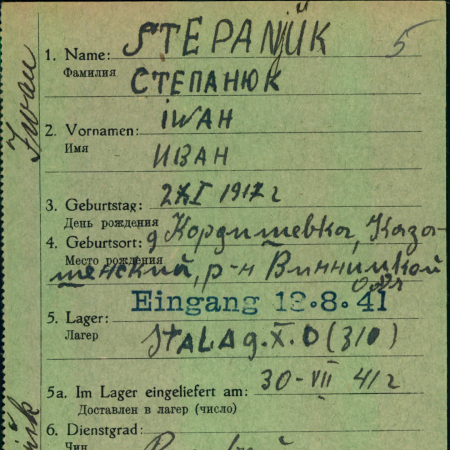 STEPANJUK 5
1. Name:
Фамилия СТЕПАНЮК
Iwan
IWAH
2. Vornamen:
Имя ИВАН
3. Geburtstag: 1917 г
День рождения
4. Geburtsort: д Кордишевка, Каза-
Место рождения
тенский, р-н Винницкой
обл
Eingang 12.8.41
5. Lager: StALAg. X. D (310)
Лагер
5a. Im Lager eingeliefert am: 30-VII 41 г
Доставлен в лагер (число)
6. Dienstgrad:
Чин